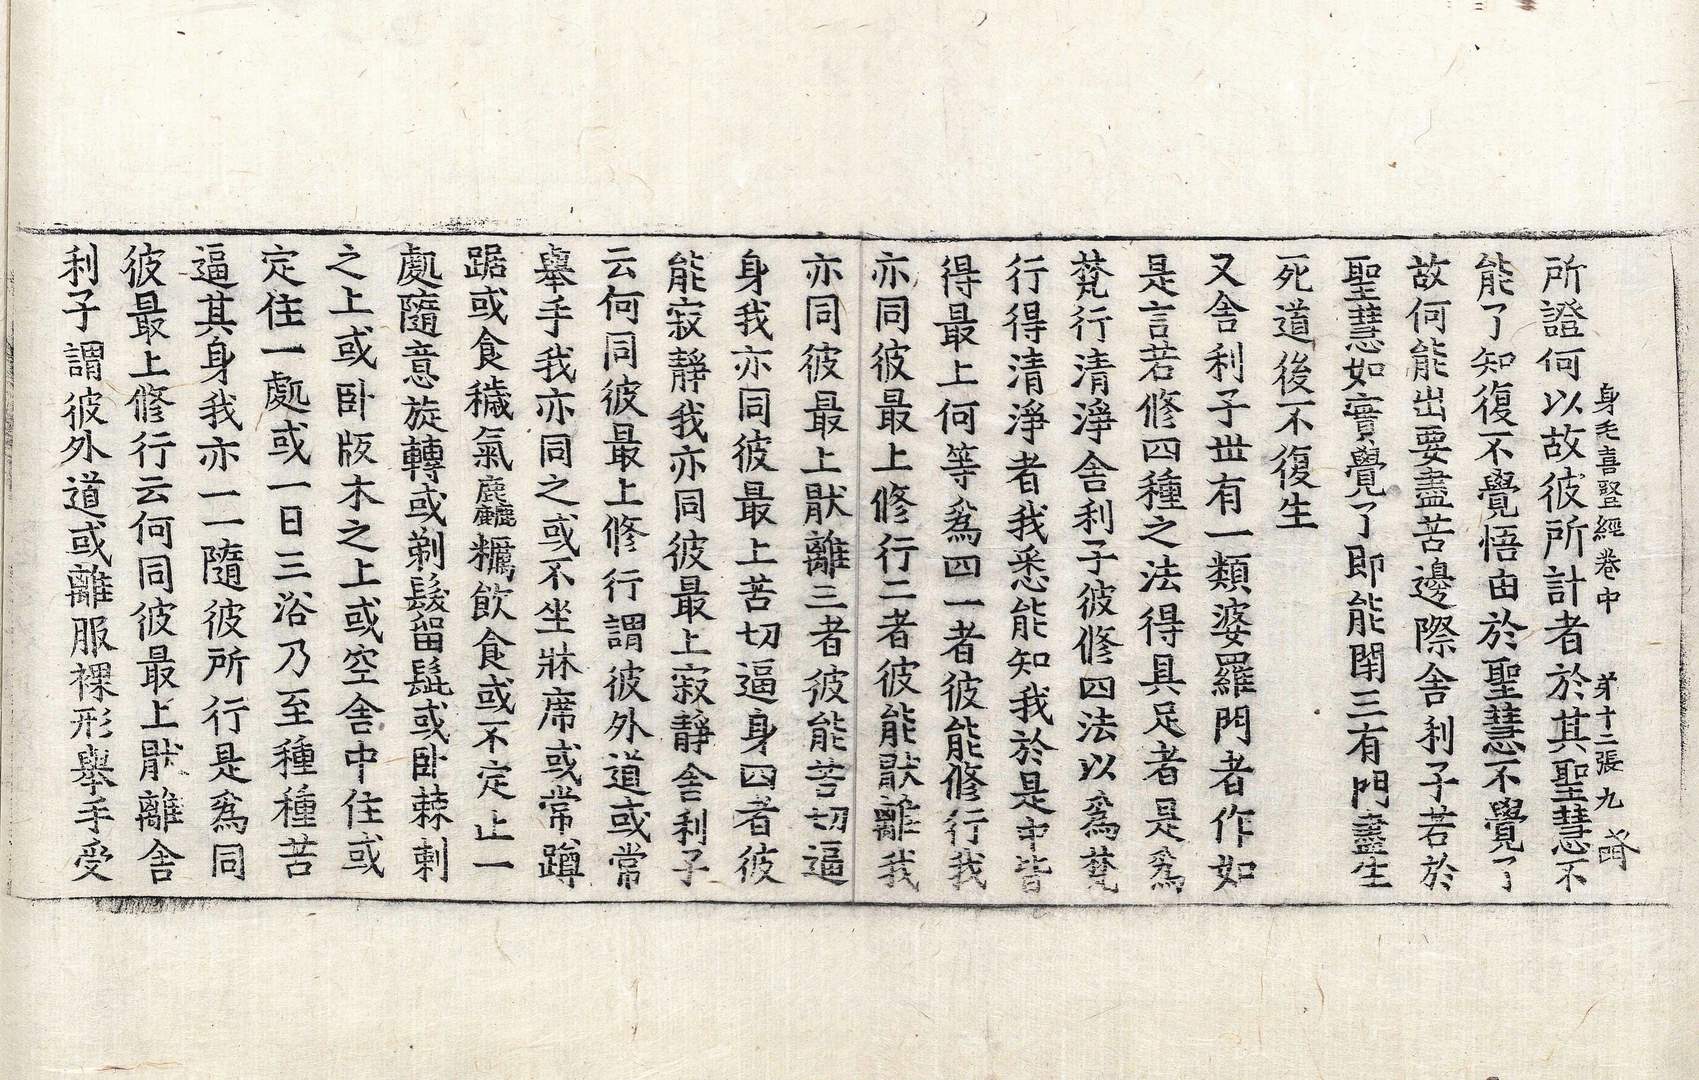 身毛喜竪經卷中 弟十二張 九
所證何以故彼所計者於其聖慧不
能了知復不覺悟由於聖慧不覺了
故何能出要盡苦邊際舍利子若於
聖慧如實覺了即能閇三有門盡生
死道後不復生
又舍利子丗有一類婆羅門者作如
是言若修四種之法得具足者是爲
梵行清淨舍利子彼修四法以爲梵
行得清淨者我悉能知我於是中皆
得最上何等爲四一者彼能修行我
亦同彼最上修行二者彼能猒離我
亦同彼最上猒離三者彼能苦切逼
身我亦同彼最上苦切逼身四者彼
能寂靜我亦同彼最上寂靜舍利子
云何同彼最上修行謂彼外道或常
舉手我亦同之或不坐牀席或常蹲
踞或食穢氣麤糲飲食或不定止一
處隨意旋轉或剃髮留髭或卧棘刺
之上或卧版木之上或空舍中住或
定住一處或一日三浴乃至種種苦
逼其身我亦一一隨彼所行是爲同
彼最上修行云何同彼最上猒離舍
利子謂彼外道或離服裸形舉手受